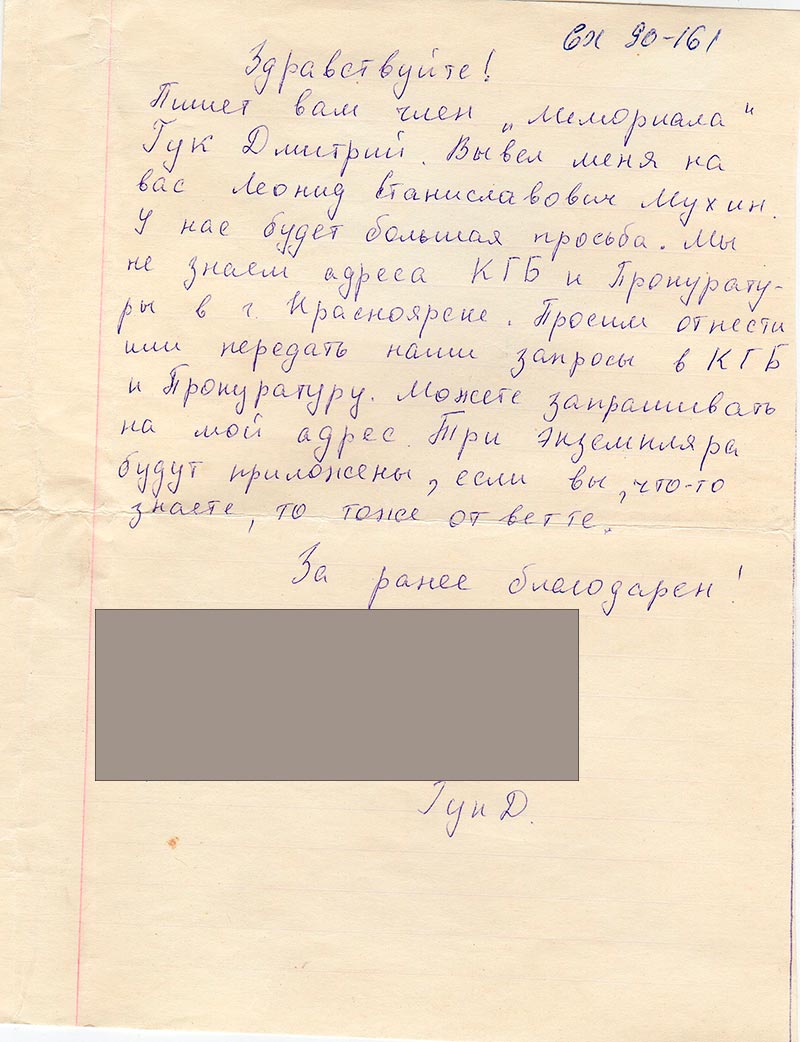 Вх 90-161
Здравствуйте!
Пишет вам член „Мемориала"
Гук Дмитрий. Вывел меня на
вас Леонид Станиславович Мухин.
У нас будет большая просьба. Мы
не знаем адреса КГБ и Прокурату-
ры в г. Красноярске. Просим отнести
или передать наши запросы в КГБ
и Прокуратуру. Можете запрашивать
на мой адрес. Три экземпляра
будут приложены, если вы, что-то
знаете, то тоже ответте.
За ранее благодарен!
Гук Д.